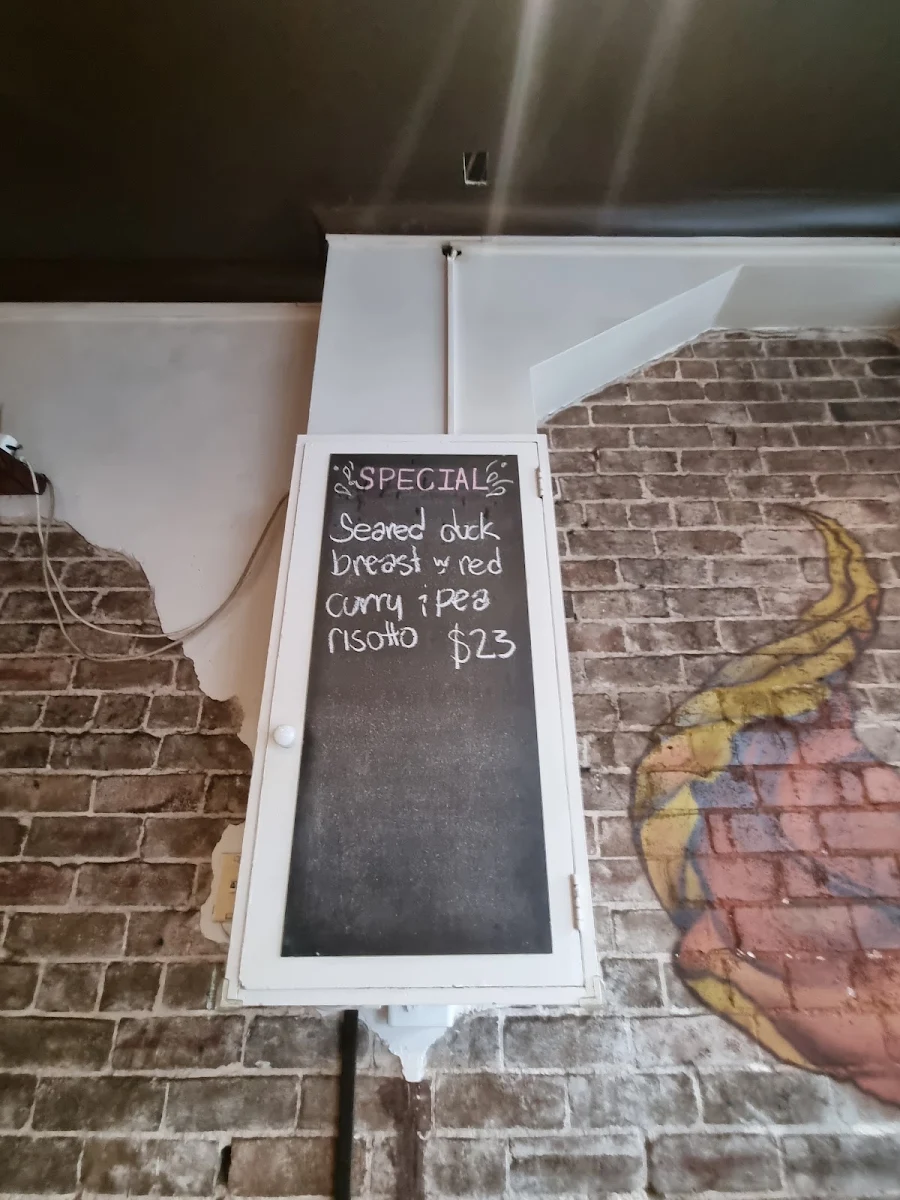 SPECIAL
Seared duck
breast w red
curry i pea
risotto $23